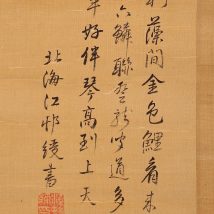 藻間金色鯉看来
六鱗聯
道多
年好伴琴高到上天
北海江邨綬書